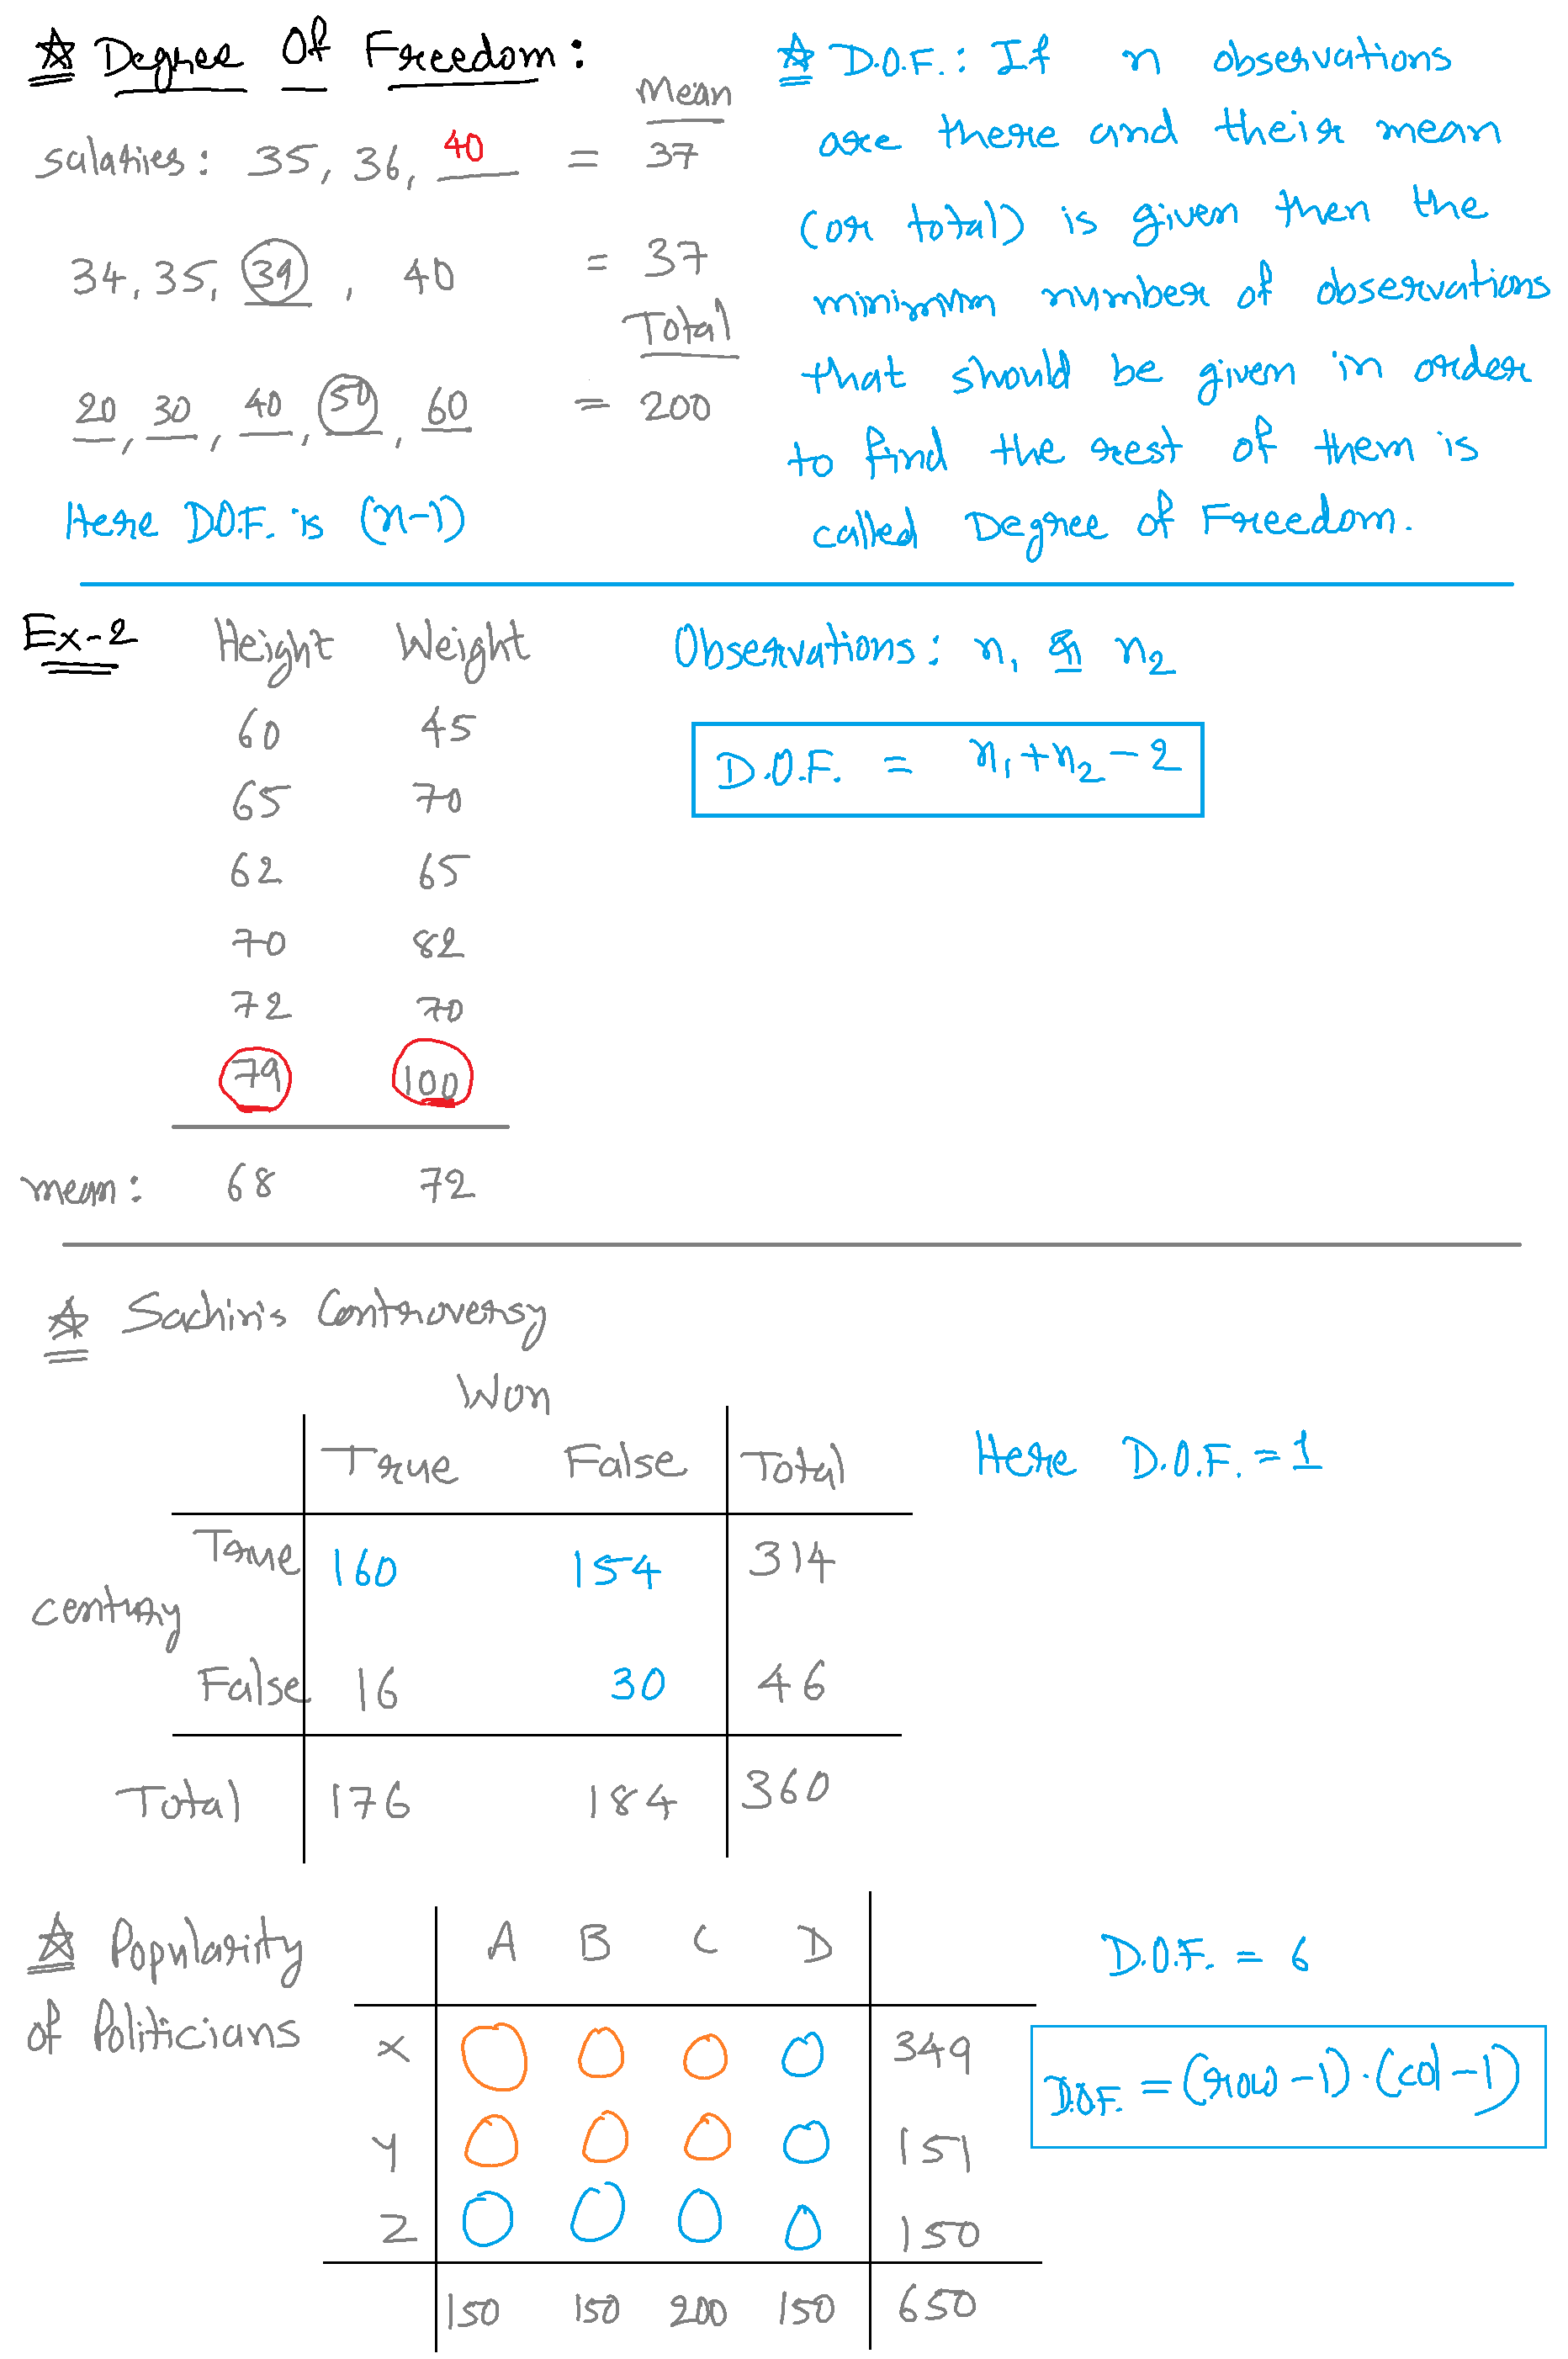 ☆ Degree Of Freedom:
Mean
salaries: 35, 36, 40 = 37
34, 35, 39, 40 = 37
Total
20, 30, 40, 50, 60 = 200
Here D.O.F. is (n-1)
☆ D.O.F.: If n observations
are there and their mean
(or total) is given then the
minimum number of observations
that should be given in order
to find the rest of them is
called Degree of Freedom.
Ex-2 Height Weight
60 45
65 70
62 65
70 82
72 70
79 100
mean: 68 72
Observations: n₁ & n₂
D.O.F. = n₁+n₂-2
☆ Sachin's Controversy
Won
True False Total
True 160 154 314
century
False 16 30 46
Total 176 184 360
Here D.O.F. = 1
☆ Popularity
of Politicians
A B C D
X 349
Y 151
Z 150
150 150 200 150 650
D.O.F. = 6
D.O.F. = (row-1)·(col-1)